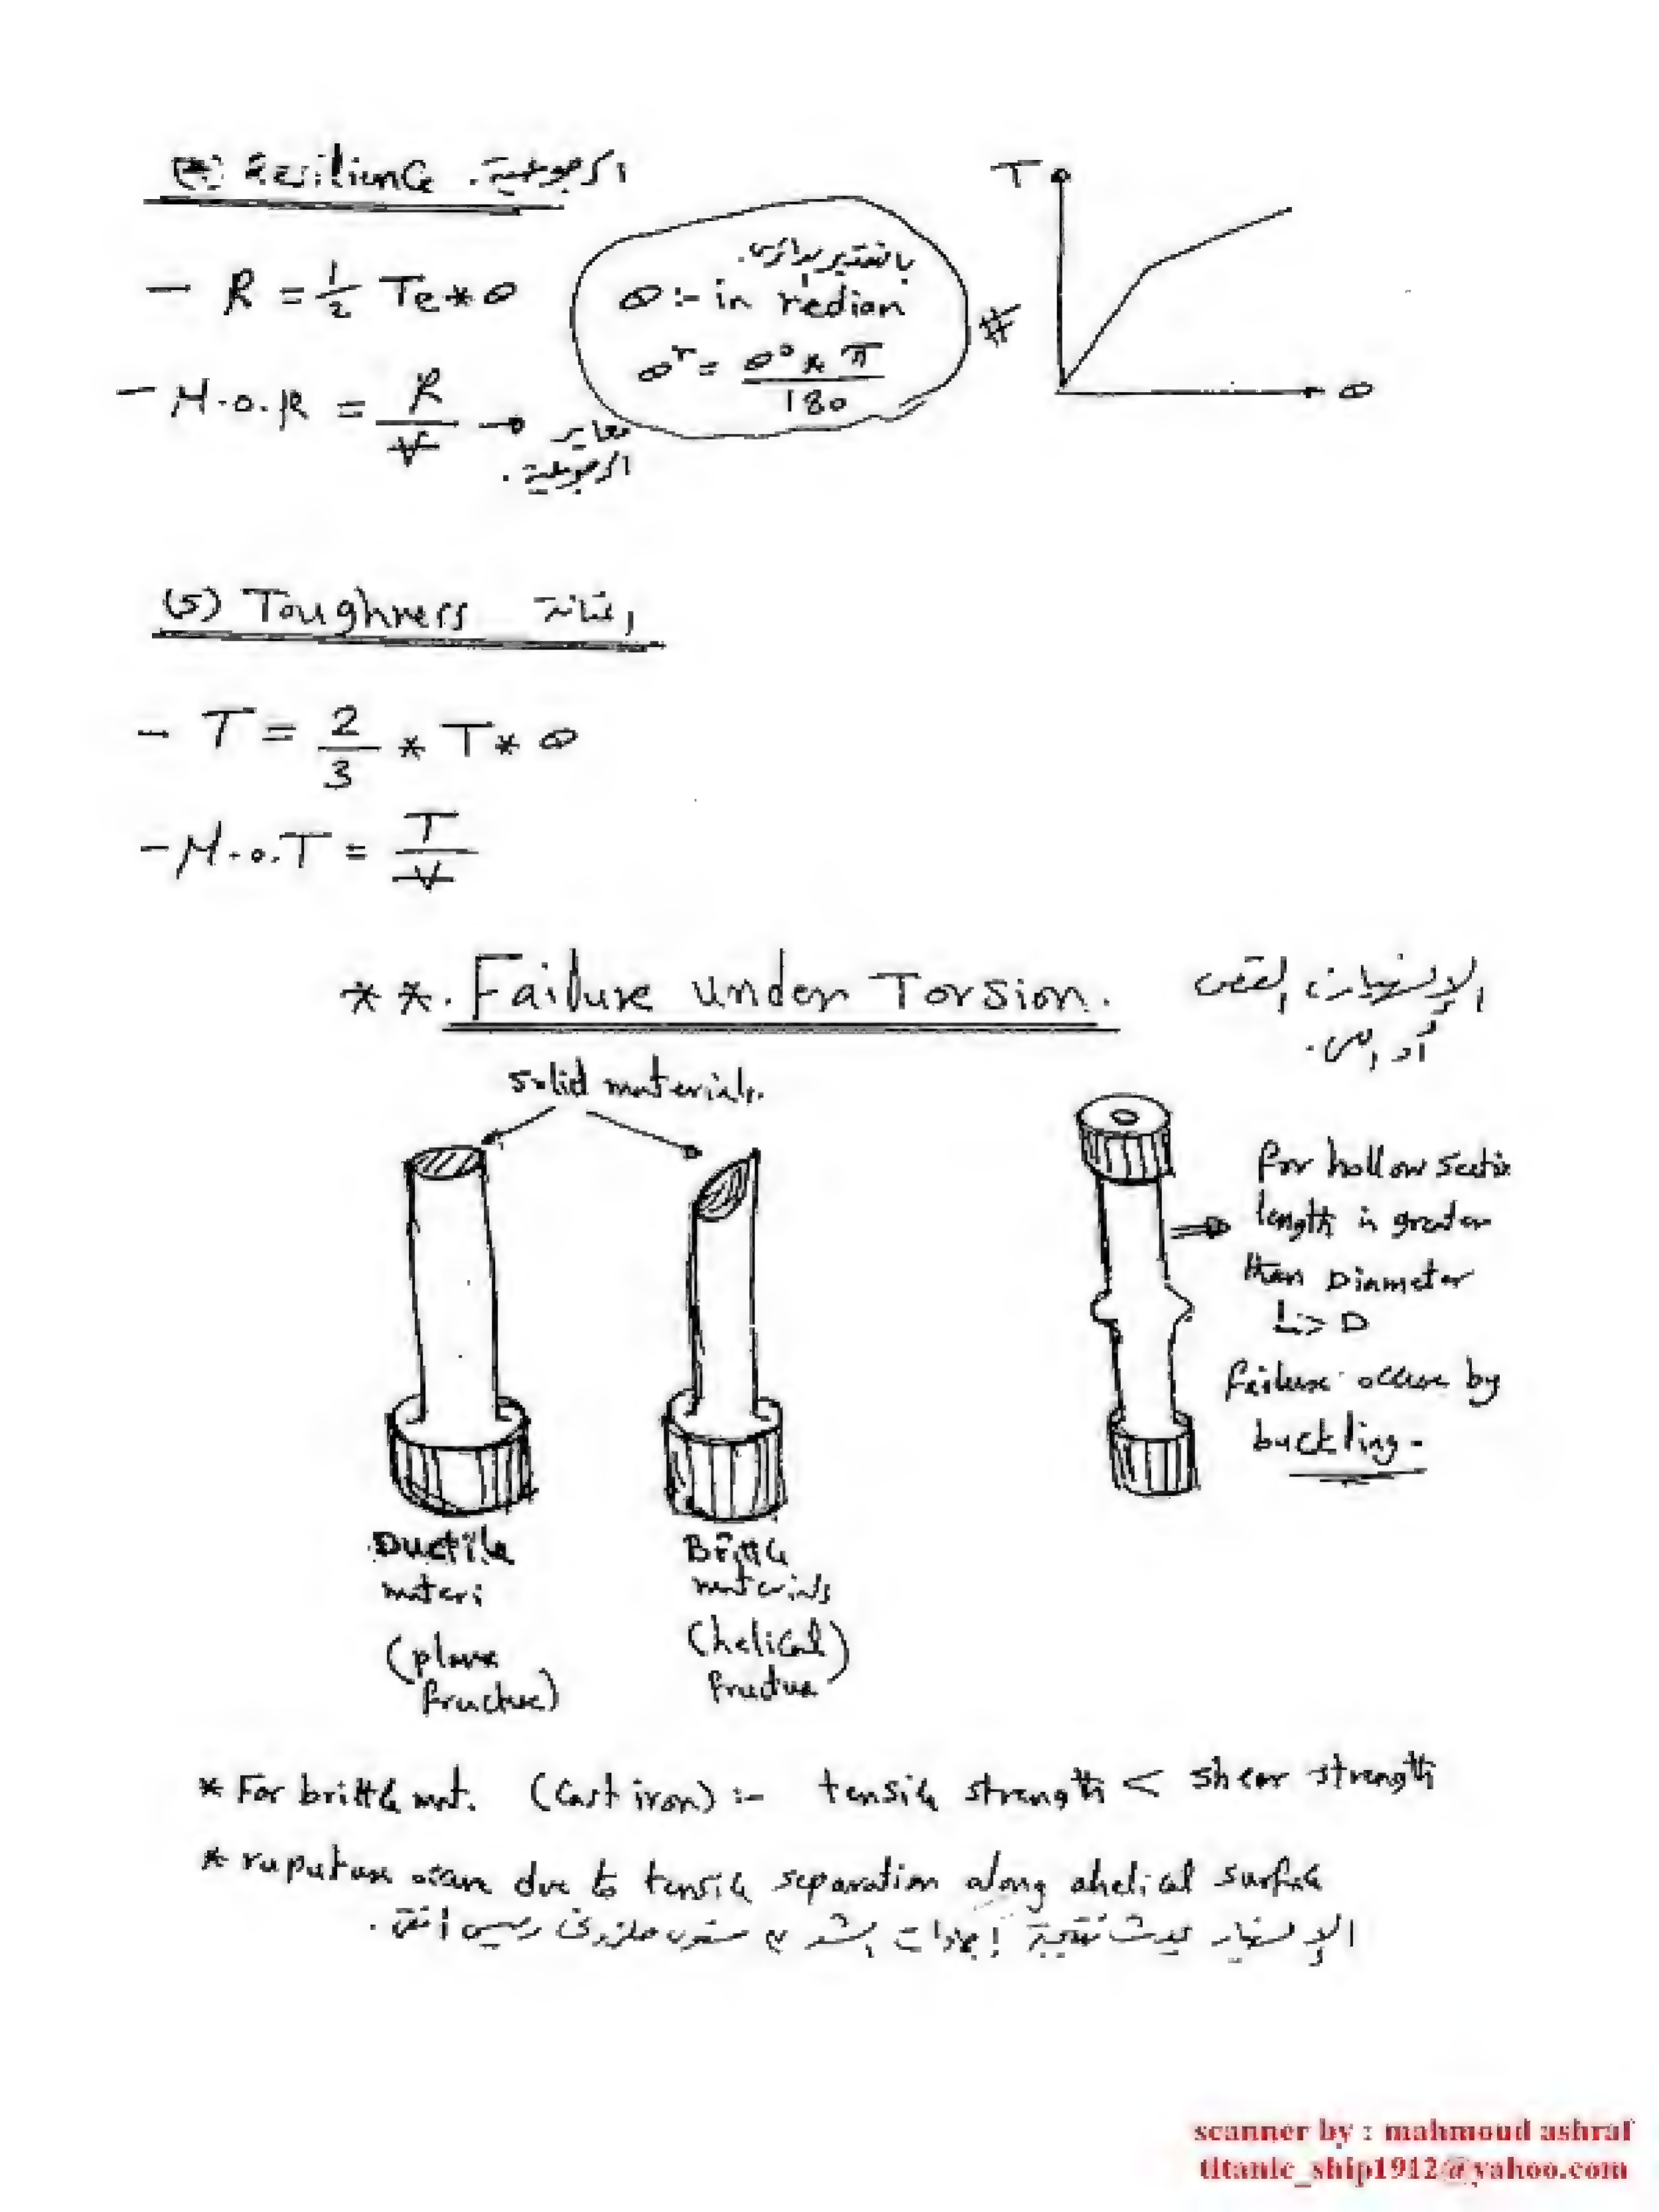 (4) Resilience الرجوعية.
- R = 1/2 Te * θ
- M.o.R = R/V → معاير الرجوعية.
بالتقدير الدائرى.
θ :- in redian
θʳ = θ° * π / 180
#
T
θ
(5) Toughness المتانة
- T = 2/3 * T * θ
- M.o.T = T/V
**. Failure under Torsion.
الإنهيار
solid materials.
Ductile
materi
(plane
fructue)
Brittle
materials
(helical)
fructue
for hollow sectio
length is greater
than Diameter
L > D
failure occure by
buckling.
* For brittle mat. (Cast iron) :- tensile strength < shear strength
* ruputure occure due to tensile separation along ahelical surface
الإنهيار يحدث نتيجة إجهادات الشد
scanner by : mahmoud ashraf
titanic_ship1912@yahoo.com